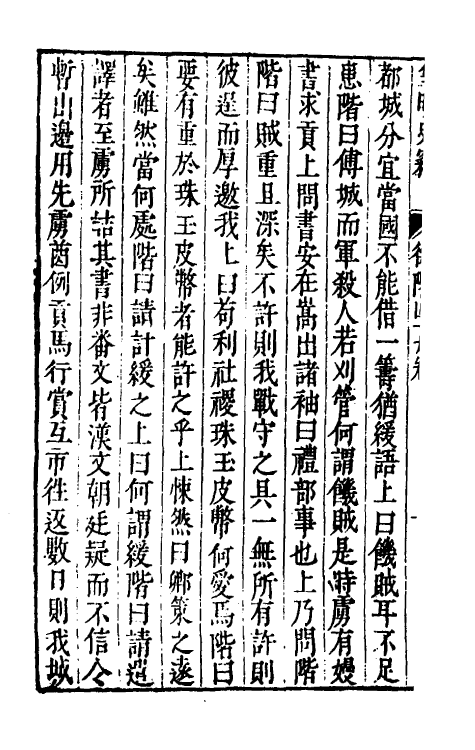 都城分宜當國不能借一籌猶緩語上曰饑賊耳不足
患階曰傅城而軍殺人若刈菅何謂饑賊是時虜有嫚
書求貢上問書安在嵩出諸袖曰禮部事也上乃問階
階曰賊重且深矣不許則我戰守之具一無所有許則
彼逞而厚邀我上曰苟利社稷珠玉皮幣何愛焉階曰
要有重於珠玉皮幣者能許之乎上悚然曰卿策之遠
矣雖然當何處階曰請計緩之上曰何謂緩階曰請遣
譯者至虜所詰其書非番文皆漢文朝廷疑而不信令
暫出邊用先虜酋例貢馬行賞互市往返數日則我城